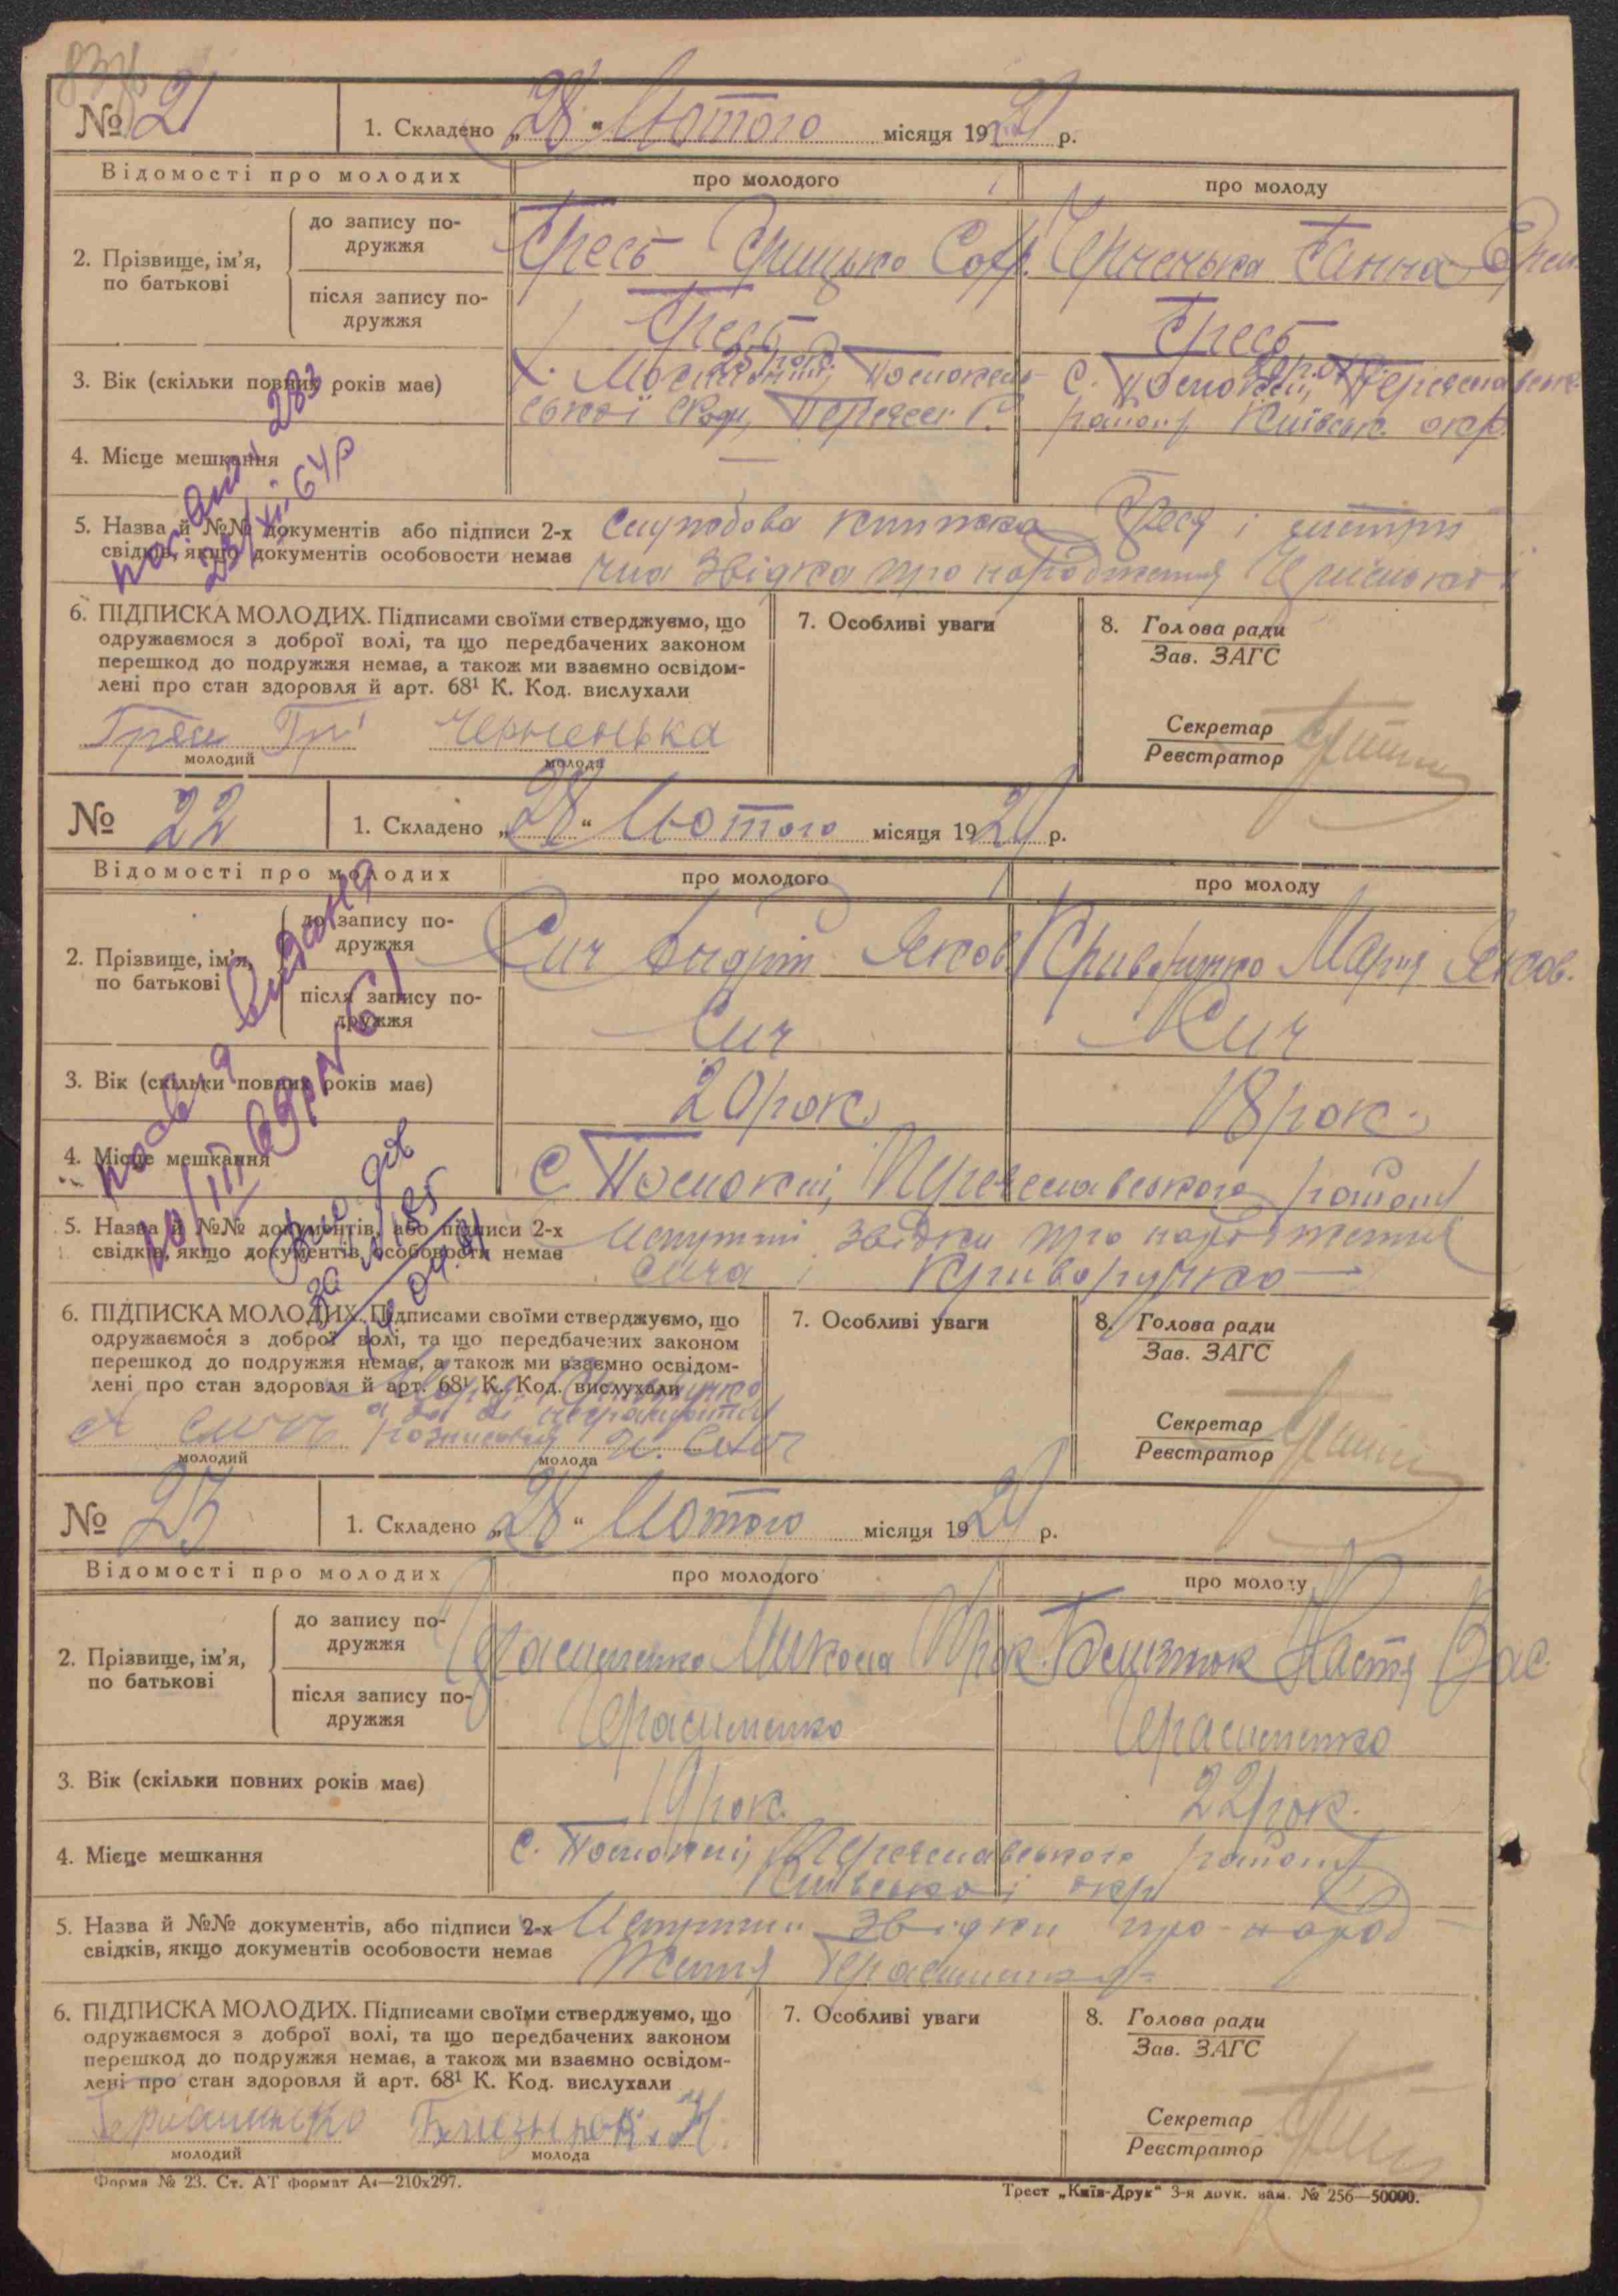 № 21
1. Складено „28“ Лютого місяця 1929 р.
Відомості про молодих про молодого про молоду
2. Прізвище, ім’я, по батькові
до запису подружжя Гресь Грицько Соф. Чернечька Ганна
після запису подружжя Гресь Гресь
3. Вік (скільки повних років має) 25 рок.
4. Місце мешкання
С. Помоклі, Переяславськ.
району Київськ. окр.
посвід. 283
23/XII 64 р
5. Назва й №№ документів або підписи 2-х Службова книжка Греся і метри
свідків, якщо документів особовости немає чна звідка про народження
6. ПІДПИСКА МОЛОДИХ. Підписами своїми стверджуємо, що
одружаємося з доброї волі, та що передбачених законом
перешкод до подружжя немає, а також ми взаємно освідом-
лені про стан здоровля й арт. 68¹ К. Код. вислухали
Гресь Гр Черненька
молодий молода
7. Особливі уваги
8. Голова ради
Зав. ЗАГС
Секретар
Реєстратор
№ 22
1. Складено „28“ Лютого місяця 1929 р.
Відомості про молодих про молодого про молоду
2. Прізвище, ім’я, по батькові
до запису подружжя Сич Андрій Яков Криворучко Марія Яков.
після запису подружжя Сич Сич
3. Вік (скільки повних років має) 20 рок. 18 рок.
4. Місце мешкання С. Помоклі, Переяславського району
5. Назва й №№ документів, або підписи 2-х звідки про народження
свідків, якщо документів особовости немає Сича і Криворучко
6. ПІДПИСКА МОЛОДИХ. Підписами своїми стверджуємо, що
одружаємося з доброї волі, та що передбачених законом
перешкод до подружжя немає, а також ми взаємно освідом-
лені про стан здоровля й арт. 68¹ К. Код. вислухали
Криворучко
а за її неграмотн
А Сичь росписався Сич
молодий молода
7. Особливі уваги
8. Голова ради
Зав. ЗАГС
Секретар
Реєстратор
№ 23
1. Складено „28“ Лютого місяця 1929 р.
Відомості про молодих про молодого про молоду
2. Прізвище, ім’я, по батькові
до запису подружжя Герасименко Микола Прок. Близнюк Настя Вас.
після запису подружжя Герасименко Герасименко
3. Вік (скільки повних років має) 19 рок. 22 рок.
4. Місце мешкання С. Помоклі, Переяславського району
Київської окр
5. Назва й №№ документів, або підписи 2-х звідки про народ
свідків, якщо документів особовости немає ження Герасименка
6. ПІДПИСКА МОЛОДИХ. Підписами своїми стверджуємо, що
одружаємося з доброї волі, та що передбачених законом
перешкод до подружжя немає, а також ми взаємно освідом-
лені про стан здоровля й арт. 68¹ К. Код. вислухали
Близнюк. Н.
молодий молода
7. Особливі уваги
8. Голова ради
Зав. ЗАГС
Секретар
Реєстратор
Форма № 23. Ст. АТ формат А4—210х297.
Трест „Київ-Друк“ 3-я друк. зам. № 256—50000.